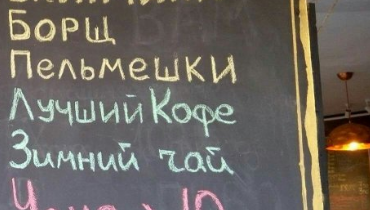 Борщ
Пельмешки
Лучший Кофе
Зимний чай